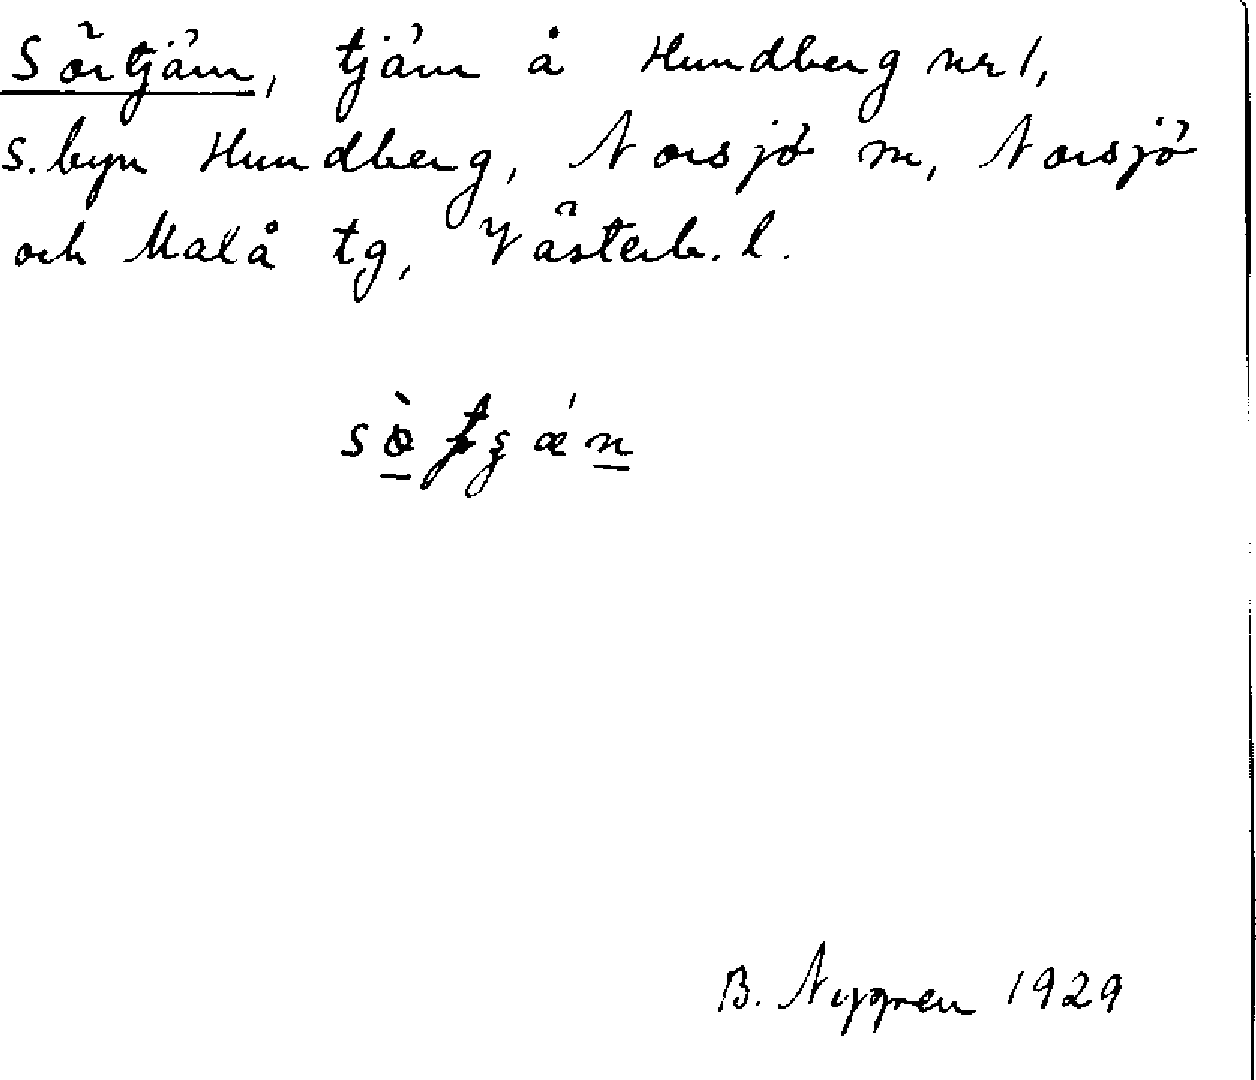 Sörtjärn, tjärn å Hundberg nr 1,
s. byn Hundberg, Norsjö sn, Norsjö
och Malå tg, Västerb. l.
B. Nygren 1929